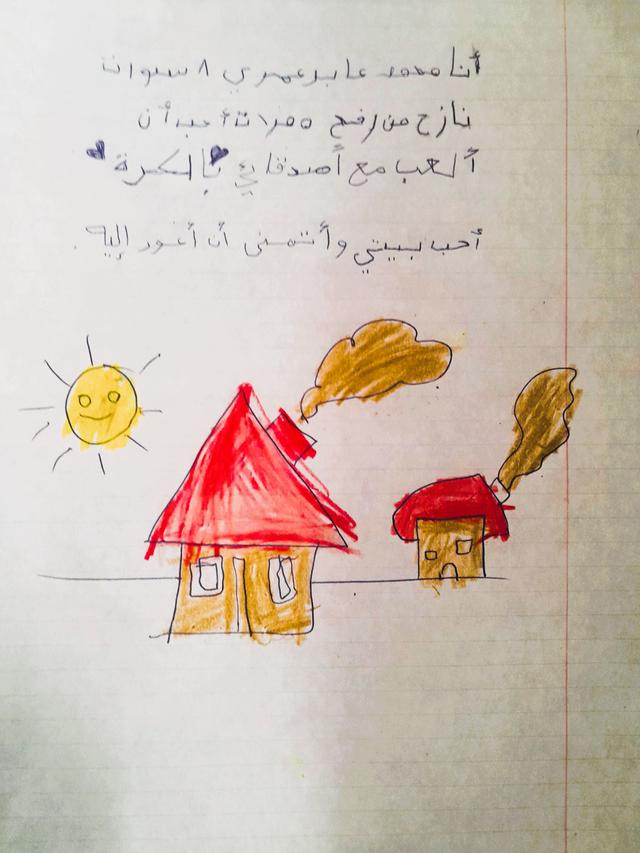 أنا محمد عابد عمري ٨ سنوات
نازح من رفح ٥ مرات أحب أن
ألعب مع أصدقائي بالكرة
أحب بيتي وأتمنى أن أعود إليه.